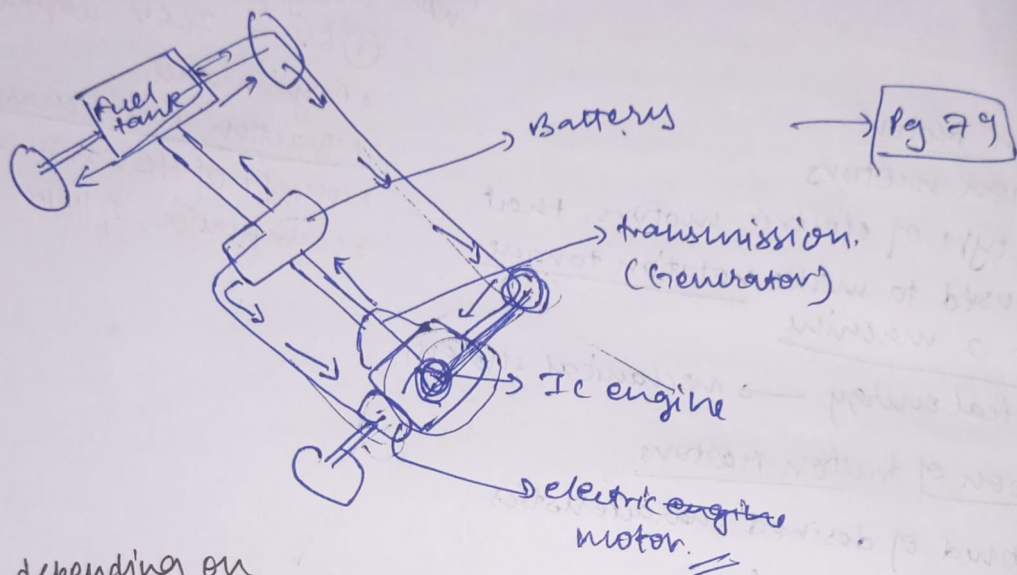 Fuel
tank
Battery
Pg 79
transmission.
(Generator)
Ic engine
electric engine
motor.
depending on